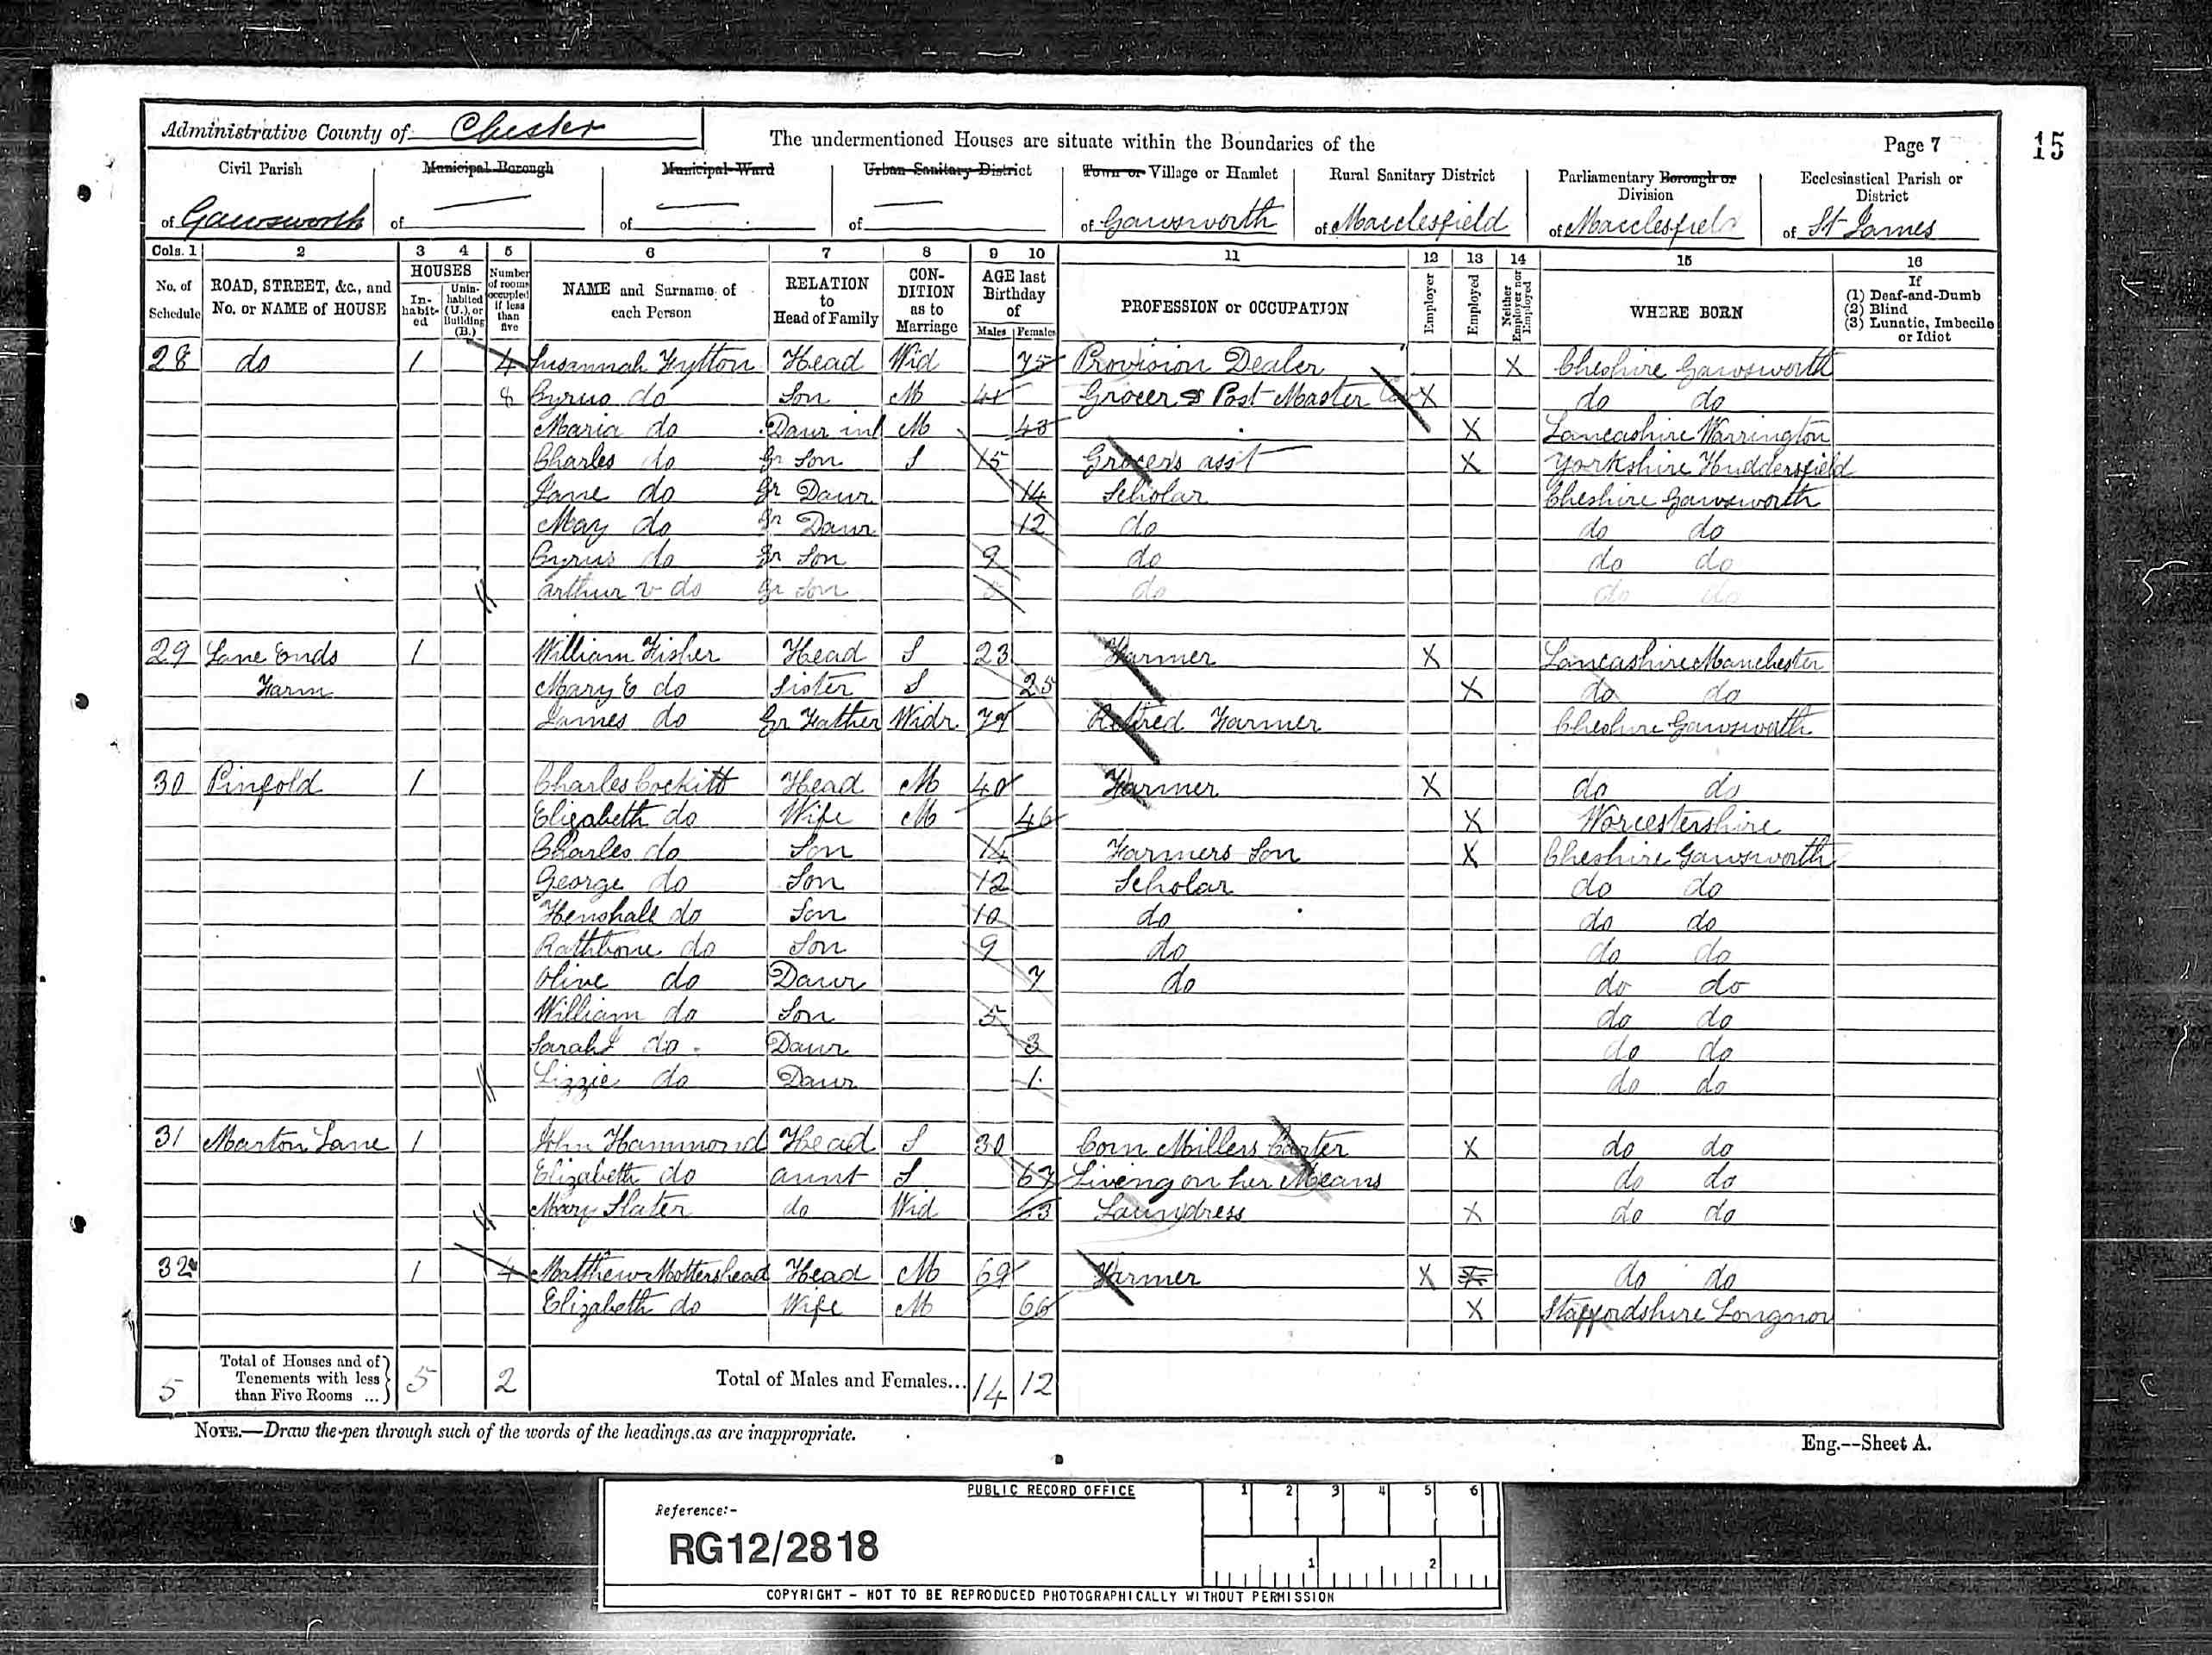 Administrative County of Chester
The undermentioned Houses are situate within the Boundaries of the
Page 7
15
Civil Parish of Gawsworth
Municipal Borough of —
Municipal Ward of —
Urban Sanitary District of —
Town or Village or Hamlet of Gawsworth
Rural Sanitary District of Macclesfield
Parliamentary Borough or Division of Macclesfield
Ecclesiastical Parish or District of St James
Cols. 1 2 3 4 5 6 7 8 9 10 11 12 13 14 15 16
No. of Schedule
ROAD, STREET, &c., and No. or NAME of HOUSE
HOUSES
In-habit-ed
Unin-habited (U.), or Building (B.)
Number of rooms occupied if less than five
NAME and Surname of each Person
RELATION to Head of Family
CON-DITION as to Marriage
AGE last Birthday of
Males Females
PROFESSION or OCCUPATION
Employer
Employed
Neither Employer nor Employed
WHERE BORN
If
(1) Deaf-and-Dumb
(2) Blind
(3) Lunatic, Imbecile or Idiot
28 do 1 4 Susannah Fytton Head Wid 75 Provision Dealer X Cheshire Gawsworth
8 Cyrus do Son M 41 Grocer & Post Master X do do
Maria do Daur inl M 43 X Lancashire Warrington
Charles do Gr Son S 15 Grocers asst X Yorkshire Huddersfield
Jane do Gr Daur 14 Scholar Cheshire Gawsworth
May do Gr Daur 12 do do do
Cyrus do Gr Son 9 do do do
Arthur V do Gr Son do do do
29 Lane Ends 1 William Fisher Head S 23 Farmer X Lancashire Manchester
Farm Mary E do Sister S 25 X do do
James do Gr Father Widr Retired Farmer Cheshire Gawsworth
30 Pinfold 1 Charles Cockitt Head M 40 Farmer X do do
Elizabeth do Wife M 46 X Worcestershire
Charles do Son 14 Farmers Son X Cheshire Gawsworth
George do Son 12 Scholar do do
Henshall do Son 10 do do do
Rathbone do Son 9 do do do
Olive do Daur 7 do do do
William do Son 5 do do
Sarah do Daur 3 do do
Lizzie do Daur 1 do do
31 Marton Lane 1 John Hammond Head S 30 Corn Millers Carter X do do
Elizabeth do aunt S 67 Living on her Means do do
Mary Slater do Wid 63 Laundress X do do
32 1 4 Matthew Mottershead Head M 69 Farmer X do do
Elizabeth do Wife M 66 X Staffordshire Longnor
5 Total of Houses and of Tenements with less than Five Rooms ... 5 2 Total of Males and Females... 14 12
NOTE.—Draw the pen through such of the words of the headings as are inappropriate.
Eng.—Sheet A.
PUBLIC RECORD OFFICE
1 2 3 4 5 6
Reference:-
RG12/2818
1 2
COPYRIGHT - NOT TO BE REPRODUCED PHOTOGRAPHICALLY WITHOUT PERMISSION